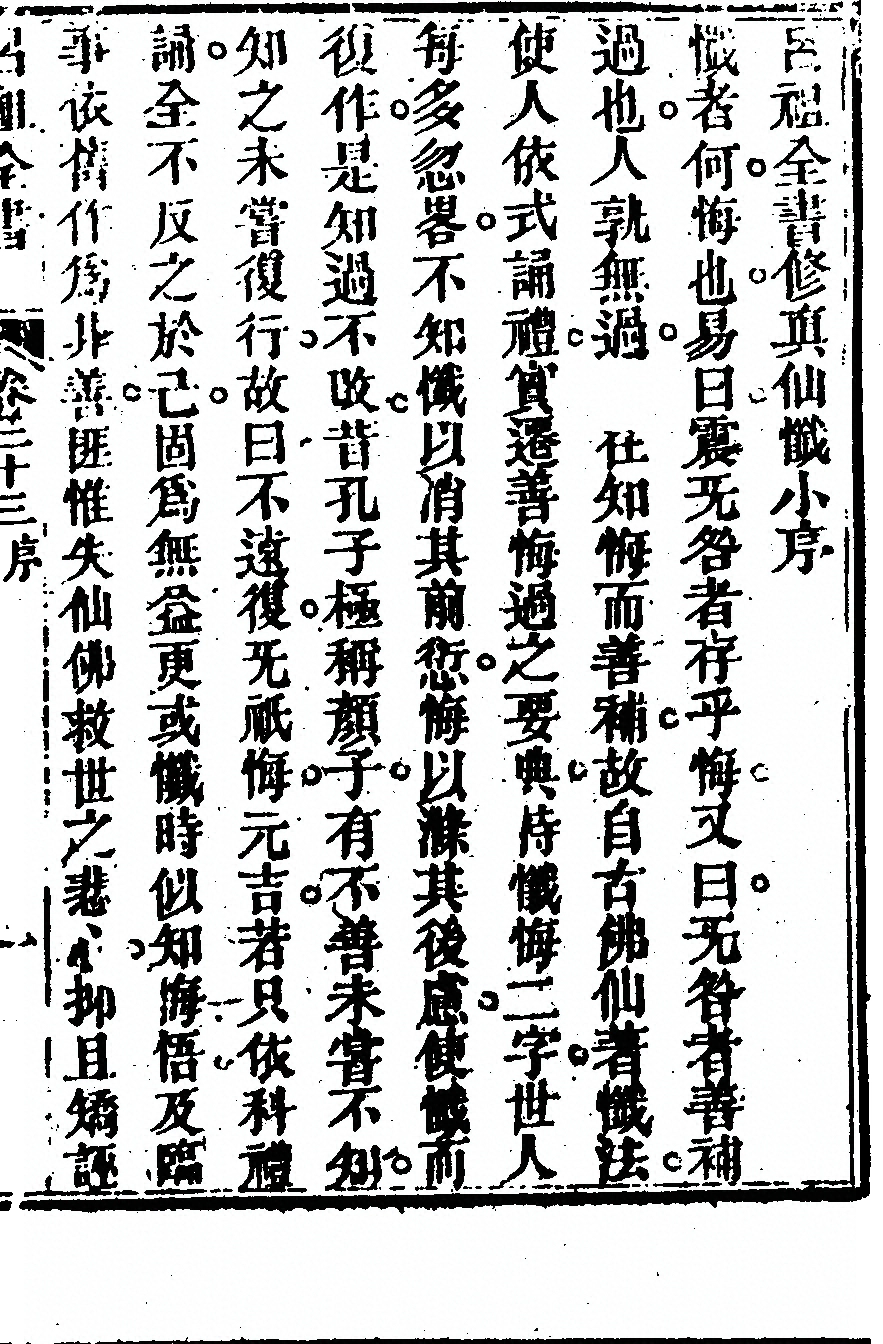 呂祖全書修真仙懺小序
懺者何悔也易曰震无咎者存乎悔又曰无咎者善補
過也人孰無過 在知悔而善補故自古佛仙著懺法
使人依式誦禮實遷善悔過之要典特懺悔二字世人
每多忽畧不知懺以消其前愆悔以滌其後慮使懺而
復作是知過不改昔孔子極稱顏子有不善未嘗不知
知之未嘗復行故曰不遠復无祗悔元吉若只依科禮
誦全不反之於己固爲無益更或懺時似知悔悟及臨
事依舊作爲非善匪惟失仙佛救世之悲 抑且矯誣
呂祖全書 卷二十三 序 一